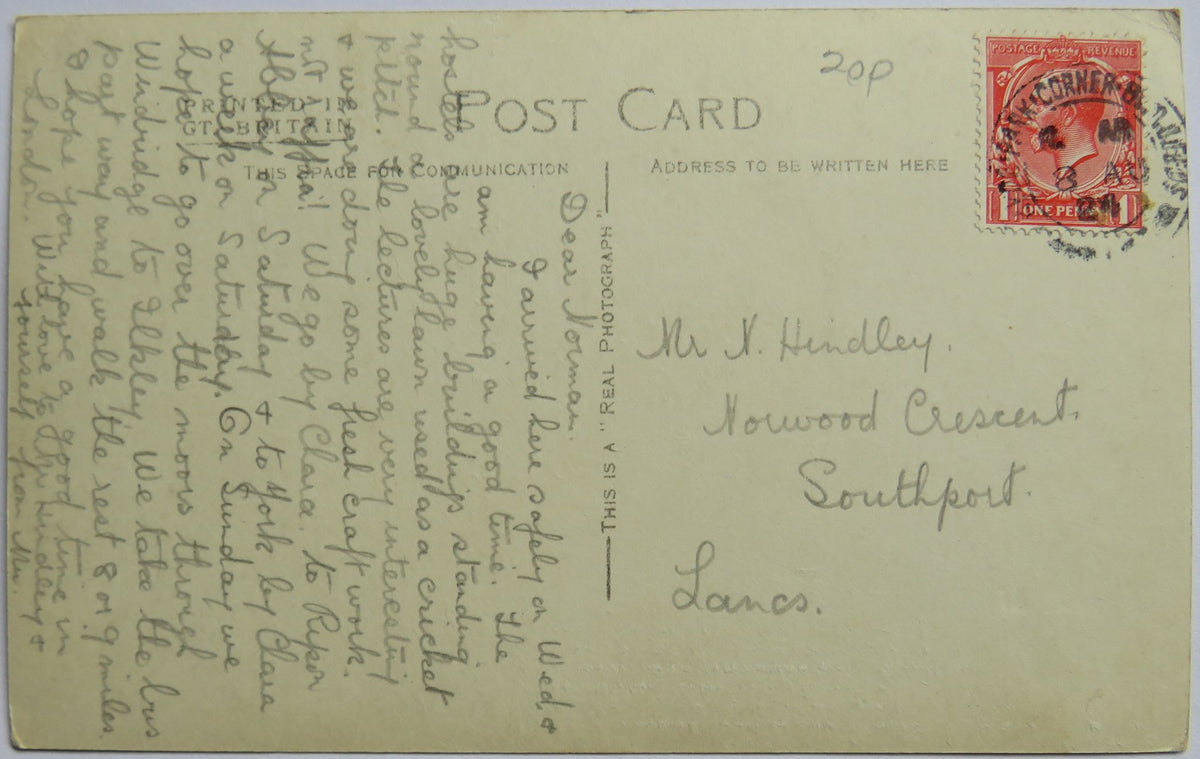 20p
POSTAGE REVENUE
1 ONE PENNY 1
CORNER
8 AU
24
PRINTED IN
GT. BRITAIN
POST CARD
THIS SPACE FOR COMMUNICATION
ADDRESS TO BE WRITTEN HERE
THIS IS A "REAL PHOTOGRAPH"
Dear Norman.
I arrived here safely on Wed, &
am having a good time. The
hostels are huge buildings standing
round a lovely lawn used as a cricket
pitch. The lectures are very interesting
& we are doing some fresh craft work.
not raffia! We go by Chara. to Ripon
Abbey on Saturday & to York by Chara
a week on Saturday. On Sunday we
hope to go over the moors through
Windridge to Ilkley. We take the bus
part way and walk the rest 8 or 9 miles.
I hope you have a good time in
London. With love to Mrs Hindley &
yourself from
Mr N. Hindley.
Norwood Crescent.
Southport.
Lancs.